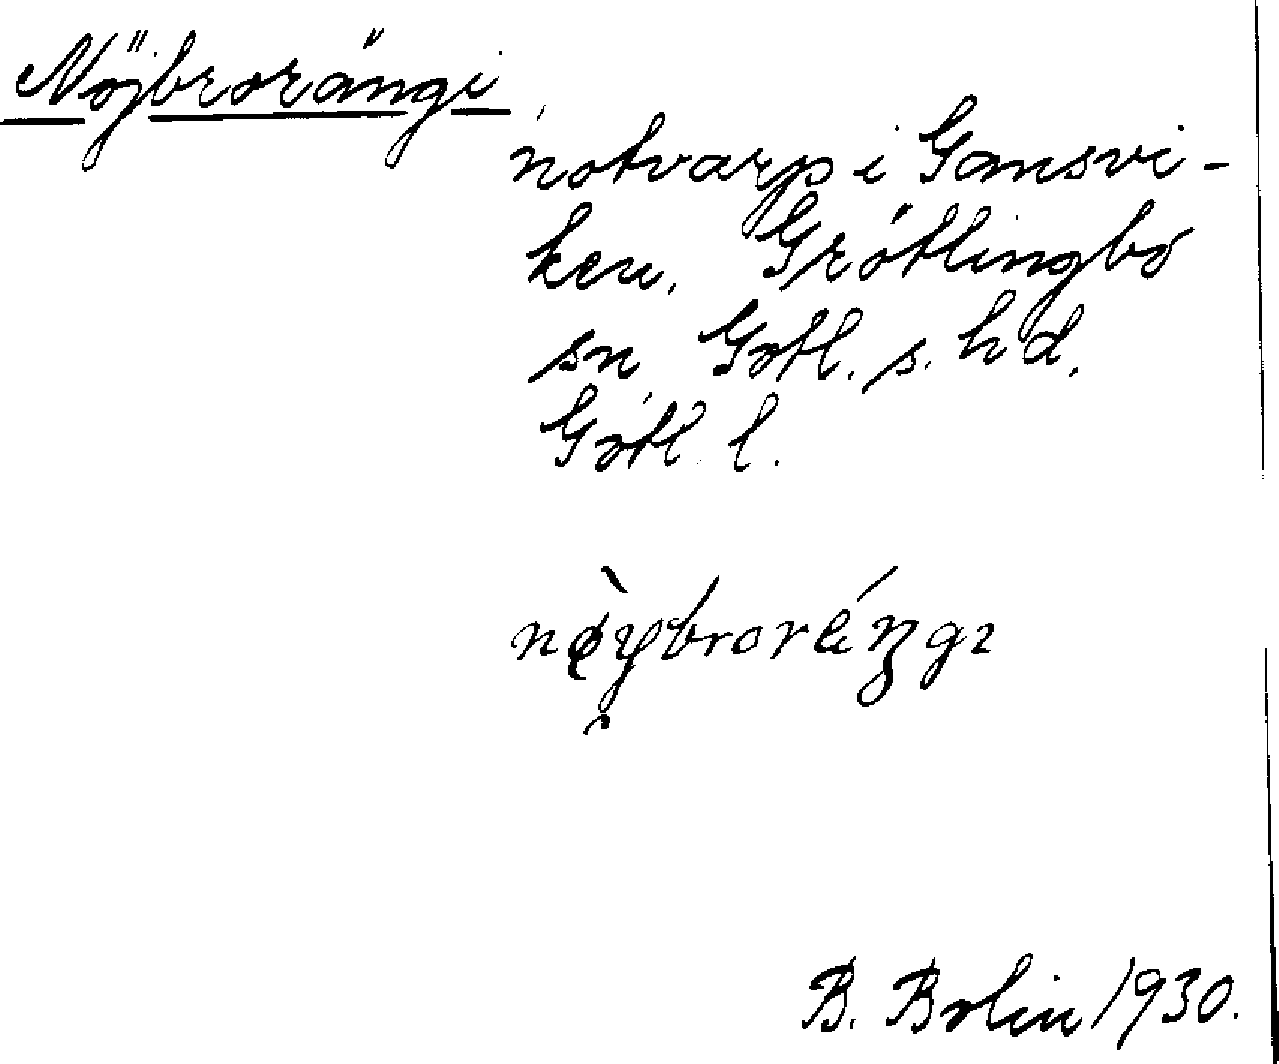 Nöjbrorängi
notvarp i Gansvi-
ken, Grötlingbo
sn Gotl. s. hd.
Gotl. l.
B. Bolin 1930.